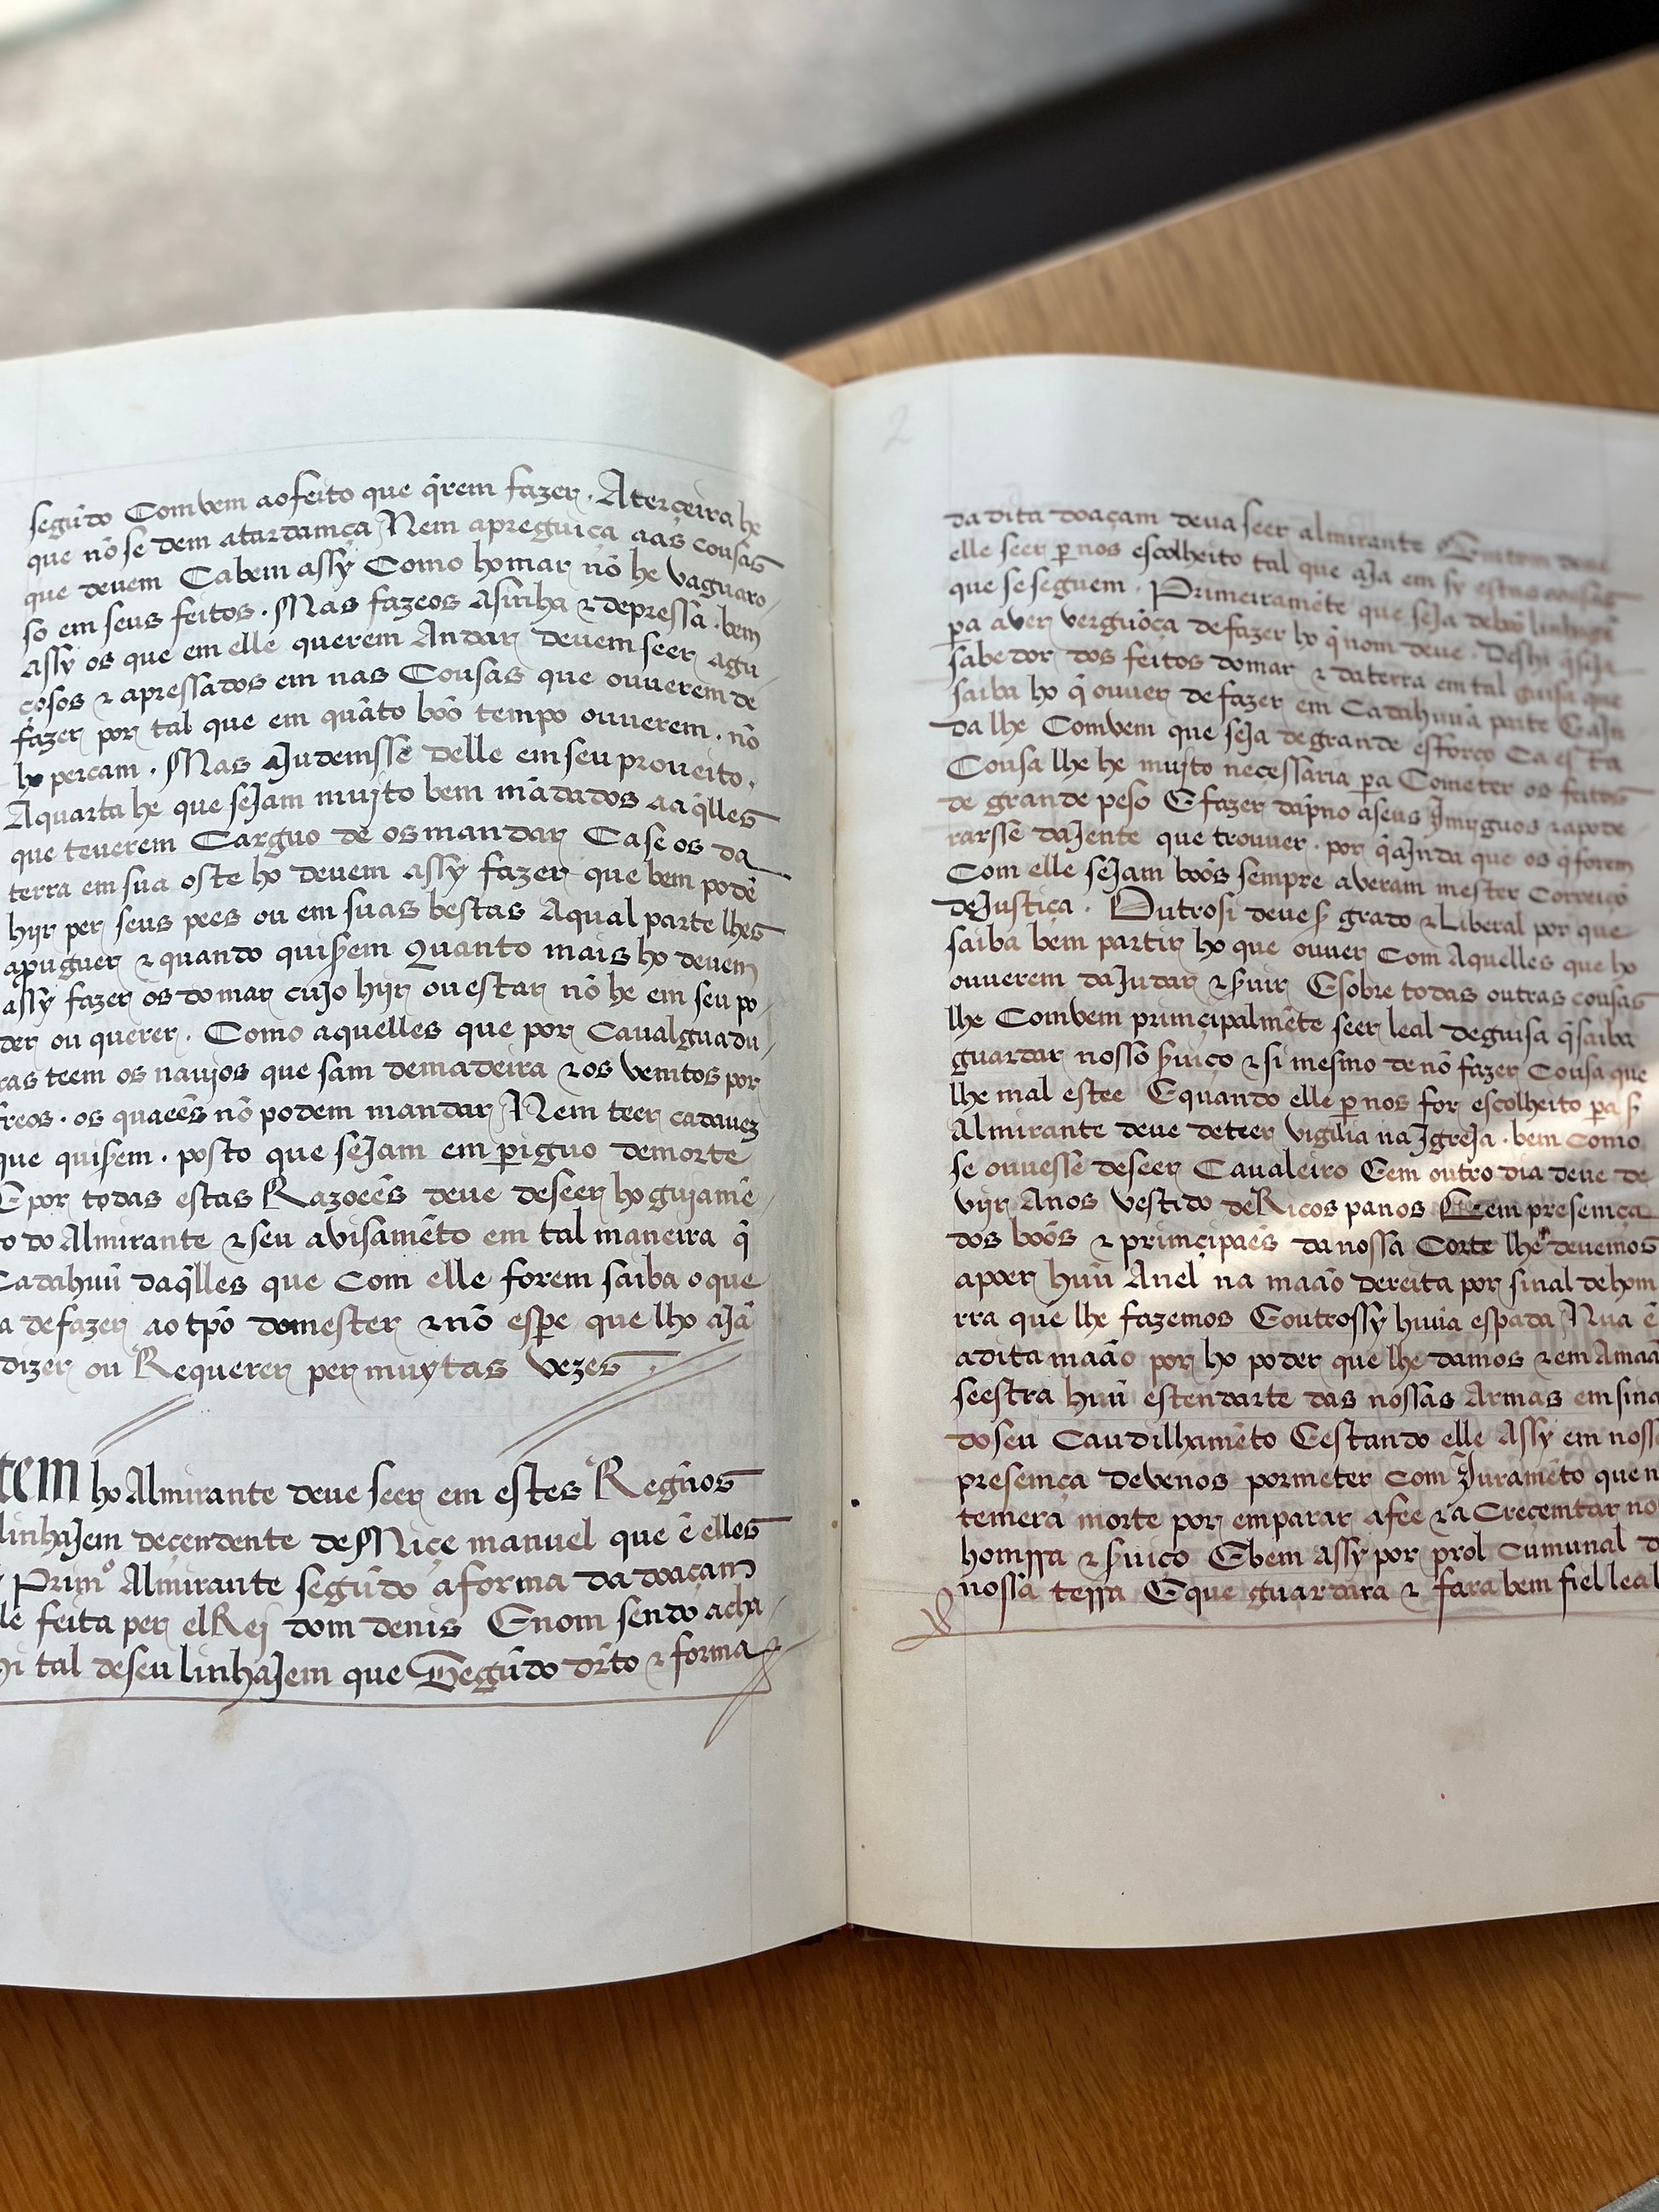 segũdo Comvem ao feito que q̃rem fazer. A terçeira he
que nõ se dem a tardamça Nem a preguiça aas cousas
que devem Ca bem assy Como ho mar nõ he vaguaro
so em seus feitos. Mas fazeos Asinha & depressa. bem
assy os que em elle querem Andar devem seer agu
çosos & apressados em nas Cousas que ouverem de
fazer por tal que em quãto boõ tempo ouverem. nõ
ho percam. Mas AJudemsse delle em seu proveito.
A quarta he que seJam mujto bem mãdados a aq̃lles
que teverem Carguo de os mandar Ca se os da
terra em sua oste ho devem assy fazer que bem podẽ
hijr per seus pees ou em suas bestas A qual parte lhes
aprouguer & quando quiserem Quanto mais ho devem
assy fazer os do mar cujo hijr ou estar nõ he em seu po
der ou querer. Como aquelles que por Cavalguadu
ras teem os navjos que sam de madeira & os ventos por
freos. os quaeẽs nõ podem mandar Nem teer cada vez
que quiserem. posto que seJam em periguo de morte
E por todas estas Razoeẽs deve de seer ho guiamẽ
to do Almirante & seu avisamẽto em tal maneira q̃
Cada huũ daq̃lles que Com elle forem saiba o que
a de fazer ao tp̃o do mester & nõ espere que lho aJã
dizer ou Requerer per muytas vezes.
tem ho Almirante deve seer em estes Regnos
linhaJem deçendente de Miçe manuel que ẽ elles
Primº Almirante segũdo a forma da doaçam
le feita per el Rej dom denis E nom sendo acha
hi tal de seu linhaJem que Segũdo dr̃to & forma
2
da dita doaçam deva seer almirante Emtam deve
elle seer per nos escolheito tal que aJa em sy estas cousas
que se seguem. Primeiramẽte que seJa de boõ linhagẽ
pera aver verguõça de fazer ho q̃ nom deve. Deshi q̃ seJa
sabedor dos feitos do mar & da terra em tal guisa que
saiba ho q̃ ouver de fazer em Cada huũa parte E ajn
da lhe Comvem que seJa de grande esforço Ca esta
Cousa lhe he mujto necessaria pera Cometer os feitos
de grande peso E fazer dapno a seus Jmyguos & apode
rarsse da Jente que trouver. por q̃ aJnda que os q̃ forem
Com elle seJam boõs sempre averam mester Correiçõ
de Justiça. Outrosi deve ser grado & Liberal por que
saiba bem partir ho que ouver Com Aquelles que ho
ouverem daJudar & servir E sobre todas outras cousas
lhe Comvem prinçipalmẽte seer leal de guisa q̃ saiba
guardar nosso serviço & si mesmo de nõ fazer Cousa que
lhe mal estee E quando elle per nos for escolheito pera ser
Almirante deve de teer vigilia na JgreJa. bem como
se ouvesse de seer Cavaleiro E em outro dia deve de
vijr A nos vestido de Ricos panos E em presemça
dos boõs & primçipaẽs da nossa Corte lhe devemos
a poer huũ Anel na maão dereita por sinal de hom
rra que lhe fazemos E outrossy huũa espada Nua ẽ
a dita maão por ho poder que lhe damos & em A maã
seestra huũ estendarte das nossas Armas em sina
do seu Caudilhamẽto E estando elle Assy em noss
presemça deve nos pormeter com Juramẽto que n
temera morte por emparar a fee & a Creçemtar no
homrra & serviço E bem Assy por prol cumunal d
nossa terra E que guardara & fara bem fiel leal